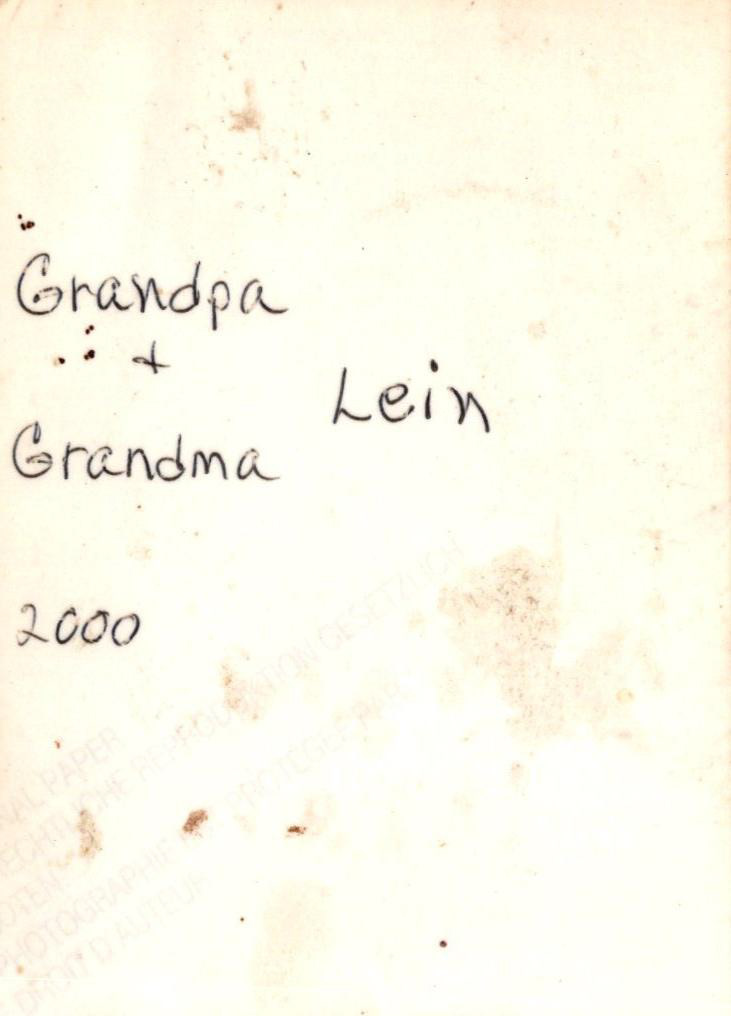 Grandpa
+
Lein
Grandma
2000
NAL PAPER
RECHTLICHE REPRODUKTION GESETZLICH
BOTEN.
PHOTOGRAPHIE PROTEGEE PAR
DROIT D'AUTEUR